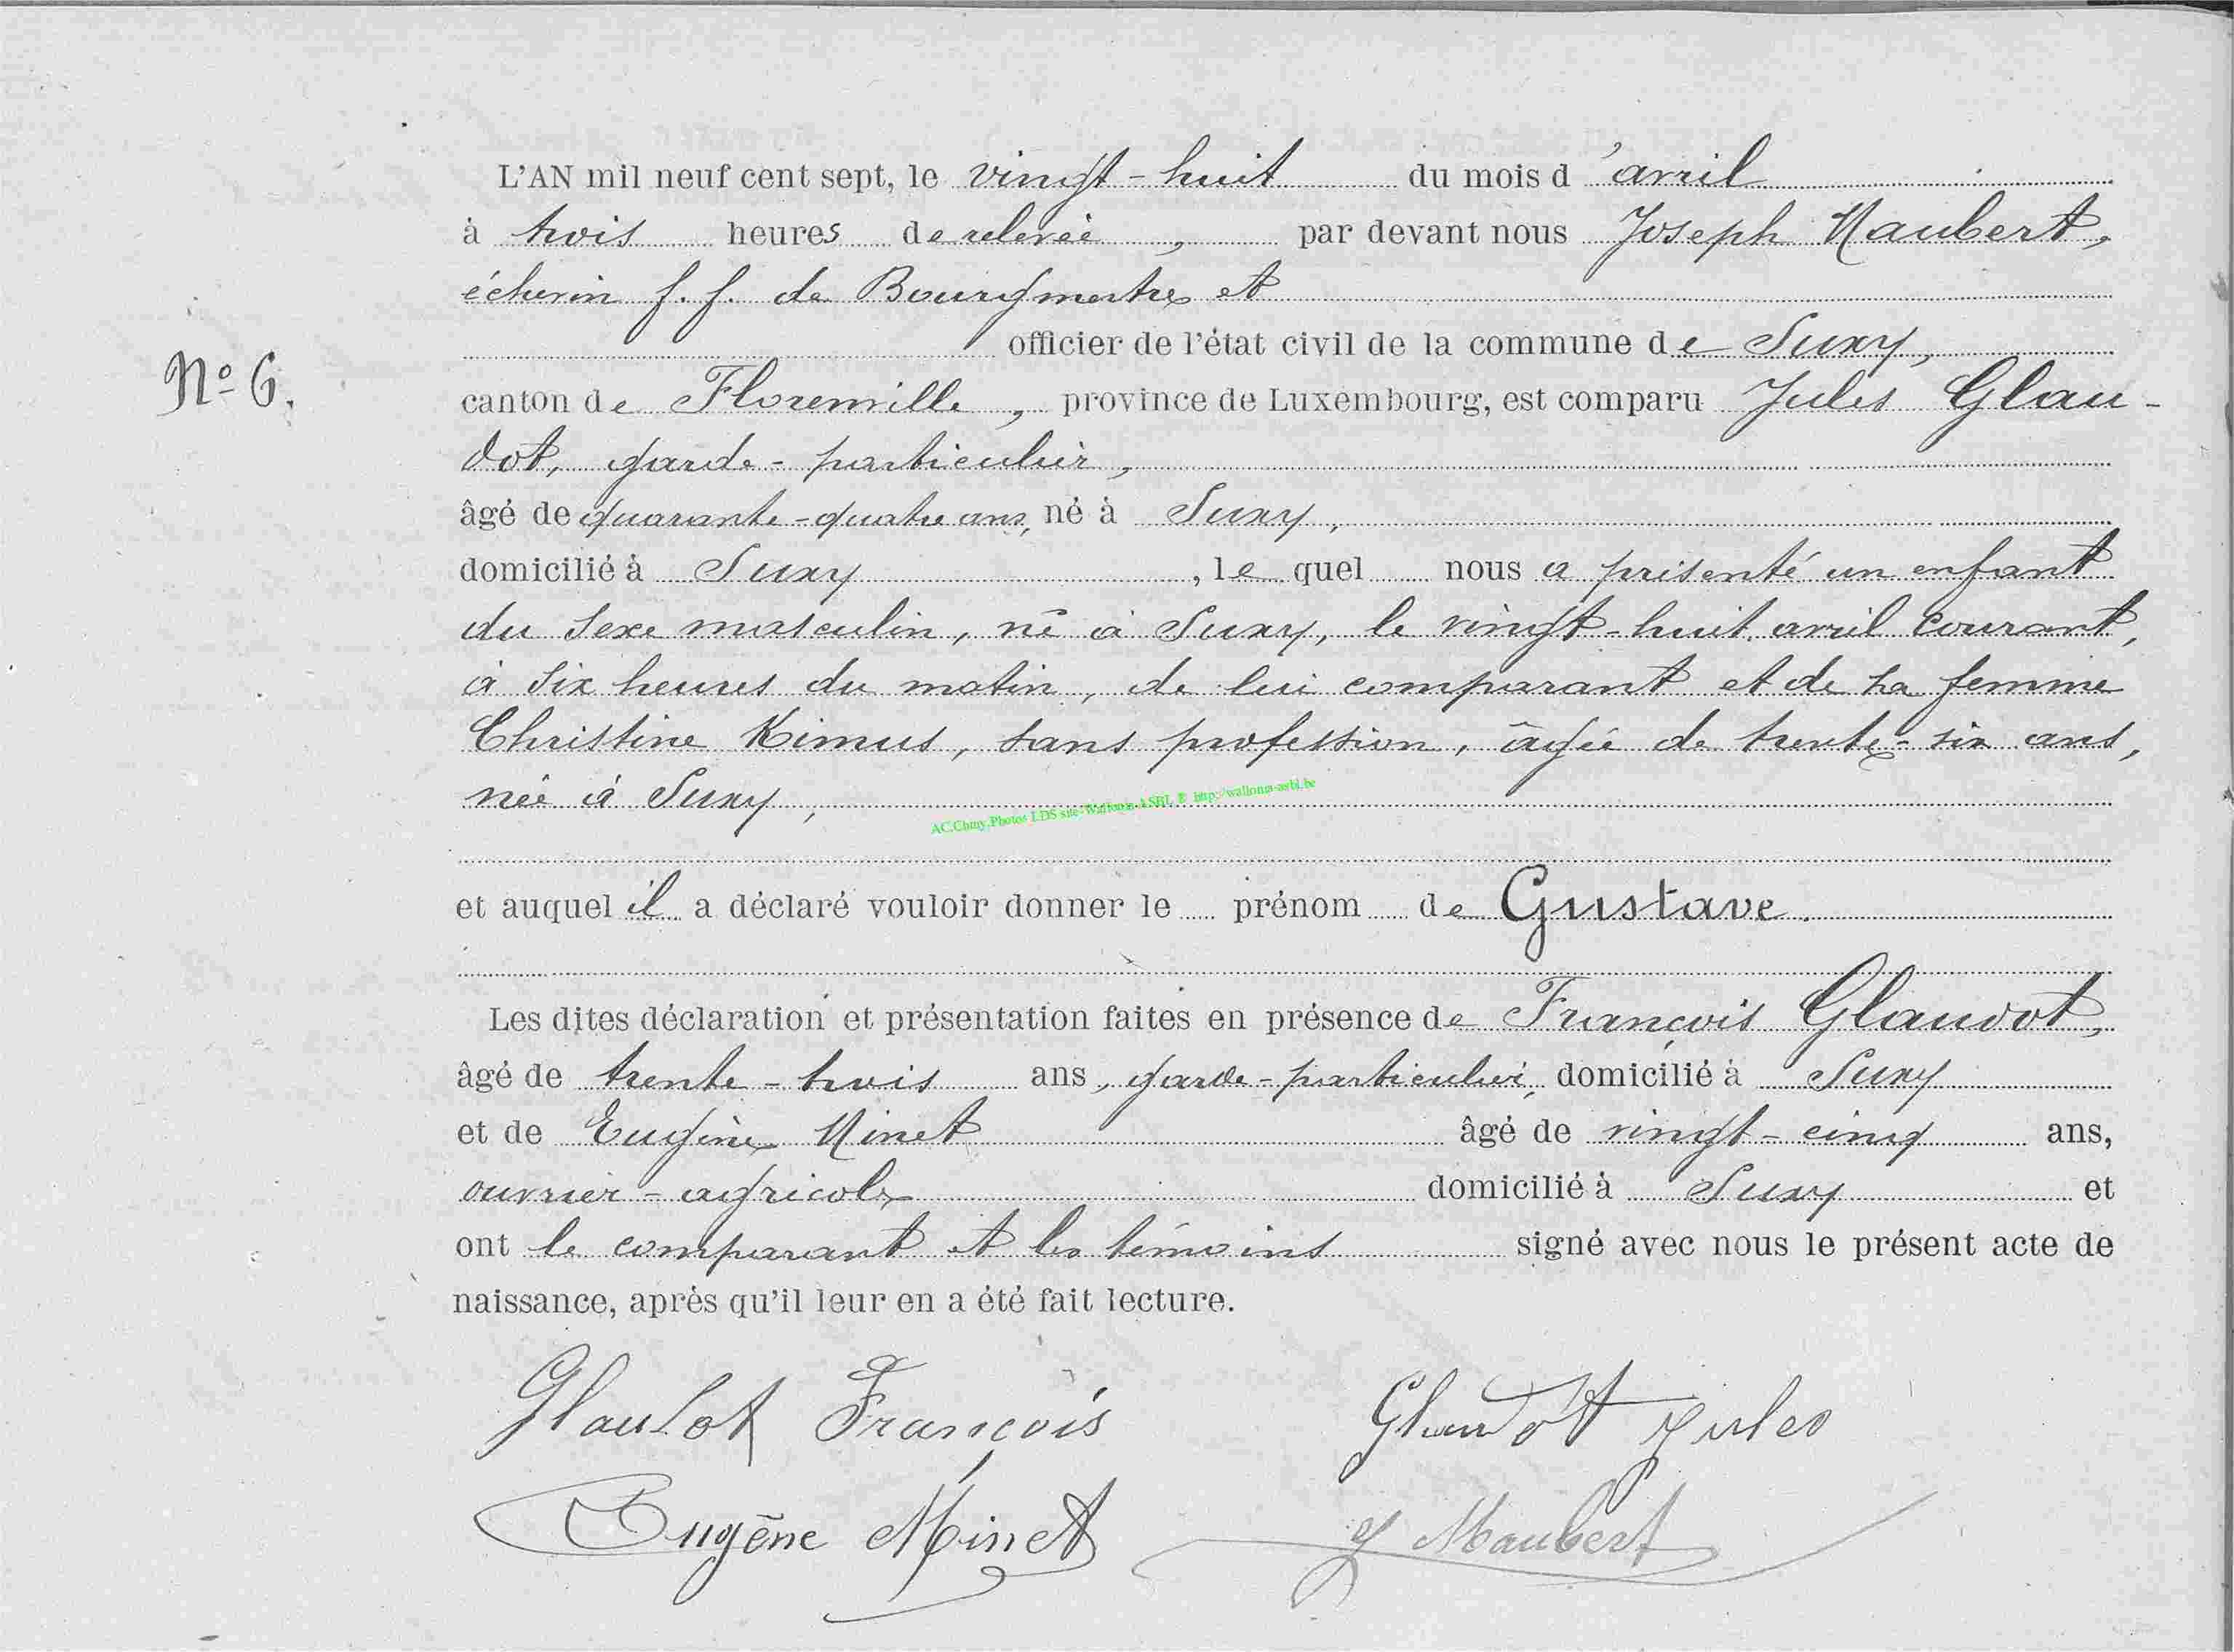 L'AN mil neuf cent sept, le vingt-huit du mois d'avril
à trois heures de relevée, par devant nous Joseph Maubert,
échevin f.f. de Bourgmestre et
officier de l'état civil de la commune de Suxy,
N° 6.
canton de Florenville, province de Luxembourg, est comparu Jules Glau-
dot, garde-particulier,
âgé de quarante-quatre ans, né à Suxy,
domicilié à Suxy, le quel nous a présenté un enfant
du sexe masculin, né à Suxy, le vingt-huit avril courant,
à six heures du matin, de lui comparant et de sa femme
Christine Kimus, sans profession, âgée de trente-six ans,
née à Suxy,
AC.Chiny,Photos LDS site-Wallonia ASBL © http://wallonia-asbl.be
et auquel il a déclaré vouloir donner le prénom de Gustave.
Les dites déclaration et présentation faites en présence de François Glaudot,
âgé de trente-trois ans, garde-particulier, domicilié à Suxy
et de Eugène Minet âgé de vingt-cinq ans,
ouvrier-agricole domicilié à Suxy et
ont le comparant et les témoins signé avec nous le présent acte de
naissance, après qu'il leur en a été fait lecture.
Glaudot François Glaudot Jules
Eugène Minet J Maubert